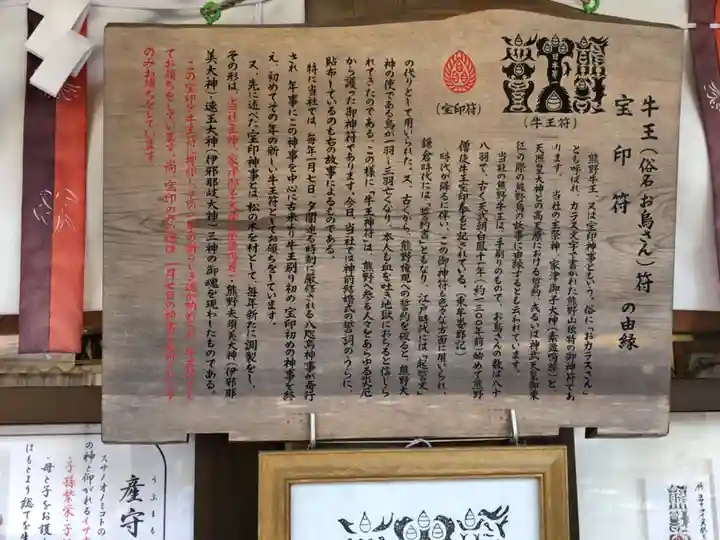 牛王(俗名お烏さん)符の由縁
宝印符
(牛王符)
(宝印符)
熊野牛王、又は宝印神事ともいう。俗に「おカラスさん」
とも呼ばれ、カラス文字で書かわれた熊野山独特の御神符であ
ります。当社の主祭神 家津御子大神(素盞嗚尊)と、
天照皇大神との高天原における誓約 或るいは神武天皇御東
征の際の熊野烏の故事に由縁するとも云われています。
当社の熊野牛王は、手刷りのもので、お烏さんの数は八十
八羽で、古く天武朝白鳳十一年(約一三〇〇年前)始めて熊野
僧徒牛王宝印奉ると記されている。
時代が降るに伴い、この御神符も色々な方面に用いられ、
鎌倉時代には「誓約書」ともなり、江戸時代には「起誓文」
の代りとして用いられた。又、古くから、熊野権現への誓約を破ると、熊野大
神の使である烏が一羽〜三羽亡くなり、本人も血を吐き地獄におちると信じら
れてきたのである。この様に「牛王神符」は、熊野へ参る人々をあらゆる災厄
から護った御神符であります。今日、当社では神前結婚式の誓詞のうらに、
貼布しているのも右の故事によるものである。
特に当社では、毎年一月七日 夕闇迫る時刻に厳修される八咫烏神事が斎行
され 年事にこの神事を中心に古来より牛王刷り初め 宝印初めの神事を終
え、初めてその年の新しい牛王符としてお頒ちをしています。
又、先に述べた宝印神事とは、松の木を材として、毎年新たに調製をし、
その形は、当社主神 家津御子大神 熊野夫須美大神(伊邪那
美大神)速玉大神(伊邪那岐大神)三神の御魂を現わしたものである。
てお頒ちをしています。尚、宝印の
のみお頒ちをしています
産守
うぶまもり
スサノオノミコトの
の神と仰がれるイサ
子孫繁栄・子
母と子をお護り
はもとより総てを生